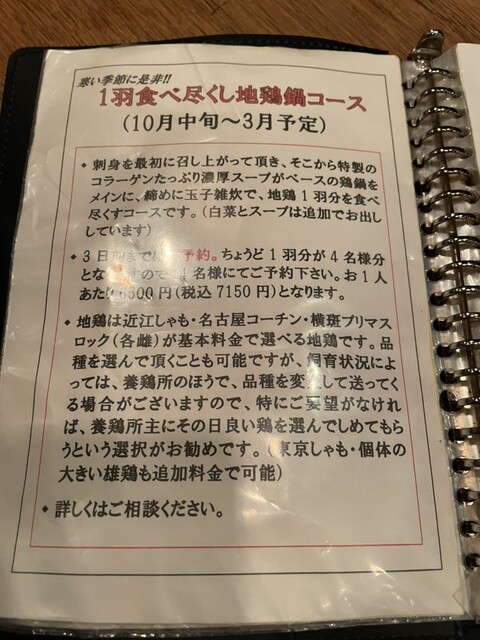 寒い季節に是非!!
1羽食べ尽くし地鶏鍋コース
(10月中旬～3月予定)
◆ 刺身を最初に召し上がって頂き、そこから特製の
コラーゲンたっぷり濃厚スープがベースの鶏鍋を
メインに、締めに玉子雑炊で、地鶏1羽分を食べ
尽くすコースです。(白菜とスープは追加でお出し
しています)
◆ 3日前までに 予約。ちょうど1羽分が4名様分
とな ので 4名様にてご予約下さい。お1人
あたり6500円(税込7150円)となります。
◆ 地鶏は近江しゃも・名古屋コーチン・横斑プリマス
ロック(各雌)が基本料金で選べる地鶏です。品
種を選んで頂くことも可能ですが、飼育状況によ
っては、養鶏所のほうで、品種を変えして送ってく
る場合がございますので、特にご要望がなけれ
ば、養鶏所主にその日良い鶏を選んでしめてもら
うという選択がお勧めです。(東京しゃも・個体の
大きい雄鶏も追加料金で可能)
◆ 詳しくはご相談ください。